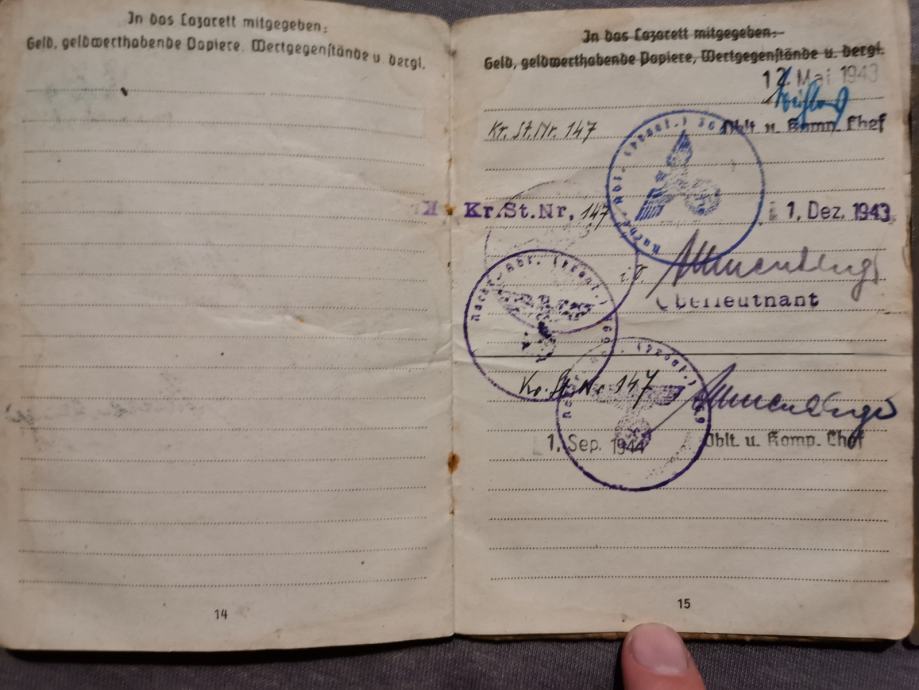 In das Lazarett mitgegeben:
Geld, geldwerthabende Papiere, Wertgegenstände u. dergl.
14
In das Lazarett mitgegeben:
Geld, geldwerthabende Papiere, Wertgegenstände u. dergl.
12. Mai 1943
Kr. St. Nr. 147
Oblt. u. Komp. Chef
Kr. St. Nr. 147
1. Dez. 1943
Oberleutnant
Kr. St. Nr. 147
1. Sep. 1944
Oblt. u. Komp. Chef
15